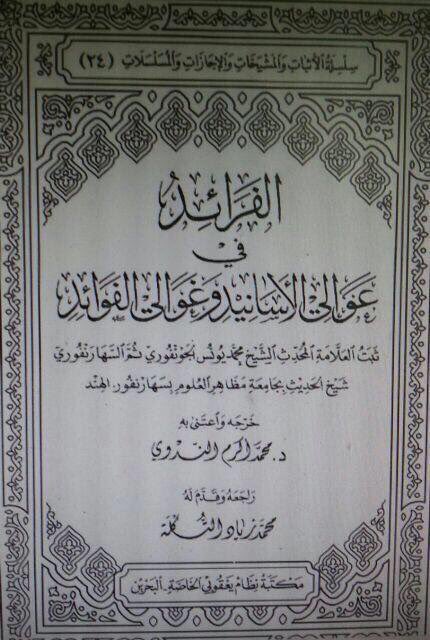 سِلسِلَةُ الأَثبَاتِ وَالمَشيَخَاتِ وَالإِجَازَاتِ وَالمُسَلسَلَاتِ (٣٤)
الفَرَائِدُ
في
عَوَالي الأَسَانيد وَغَوَالي الفَوَائِد
ثَبَتُ العَلَّامَةِ المُحَدِّثِ الشَّيخِ مُحَمَّد يُونُس الجَونفُوري ثُمَّ السَّهَارَنفُوري
شَيخِ الحَدِيثِ بِجَامِعَةِ مَظَاهِر العُلُومِ بِسَهَارَنفُور الهِند
خَرَّجَهُ وَاعتَنى بِهِ
د. محمد أكرم الندوي
رَاجَعَهُ وَقَدَّمَ لَهُ
محمد زياد التُّكلَة
مَكتَبَةُ نِظَام يَعقُوبي الخَاصَّة - البَحرَين